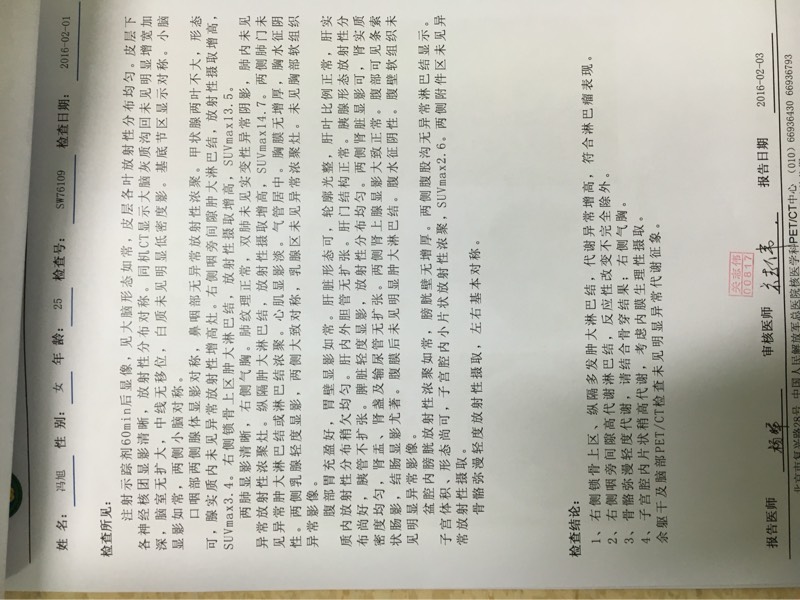 姓 名: 冯旭 性 别: 女 年 龄: 25 检查号: SW76109 检查日期: 2016-02-01
检查所见:
注射示踪剂60min后显像,见大脑形态如常,皮层各叶放射性分布均匀。皮层下
各神经核团显影清晰,放射性分布对称。同机CT显示大脑灰质沟回未见明显增宽加
深,脑室无扩大,中线无移位,白质未见明显低密度影。基底节区显示对称。小脑
显影如常,两侧小脑对称。
口咽部两侧腺体显影对称,鼻咽部无异常放射性浓聚。甲状腺两叶不大,形态
可,腺实质内未见异常放射性增高灶。右侧咽旁间隙肿大淋巴结,放射性摄取增高,
SUVmax3.4。右侧锁骨上区肿大淋巴结,放射性摄取增高,SUVmax13.5。
两肺显影清晰,右侧气胸。肺纹理正常,双肺未见实变性异常阴影,肺内未见
异常放射性浓聚灶。纵隔肿大淋巴结,放射性摄取增高,SUVmax14.7。两侧肺门未
见异常肿大淋巴结或淋巴结浓聚。心肌显影淡。气管居中。胸膜无增厚,胸水征阴
性。两侧乳腺轻度显影,两侧大致对称,乳腺区未见异常浓聚灶。未见胸部软组织
异常影像。
腹部胃充盈好,胃壁显影如常。肝脏形态可,轮廓光整,肝叶比例正常,肝实
质内放射性分布稍欠均匀。肝内外胆管无扩张。肝门结构正常。胰腺形态放射性分
布尚好,胰管不扩张。脾脏轻度显影,放射性分布均匀。两侧肾脏显影可,肾实质
密度均匀,肾盂、肾盏及输尿管无扩张。两侧肾上腺显影大致正常。腹部可见条索
状肠影,结肠显影尤著。腹膜后未见明显肿大淋巴结。腹水征阴性。腹壁软组织未
见明显异常影像。
盆腔内膀胱放射性浓聚如常,膀胱壁无增厚。两侧腹股沟无异常淋巴结显示。
子宫体积、形态尚可,子宫腔内小片状放射性浓聚,SUVmax2.6。两侧附件区未见异
常放射性摄取。
骨骼弥漫轻度放射性摄取,左右基本对称。
检查结论:
1、右侧锁骨上区、纵隔多发肿大淋巴结,代谢异常增高,符合淋巴瘤表现。
2、右侧咽旁间隙高代谢淋巴结,反应性改变不完全除外。
3、骨骼弥漫轻度代谢,请结合骨穿结果;右侧气胸。
4、子宫腔内片状稍高代谢,考虑内膜生理性摄取。
余躯干及脑部PET/CT检查未见明显异常代谢征象。
报告医师 审核医师 报告日期 2016-02-03
00817
北京市复兴路28号 中国人民解放军总医院核医学科PET/CT中心 (010) 66936430 66936793